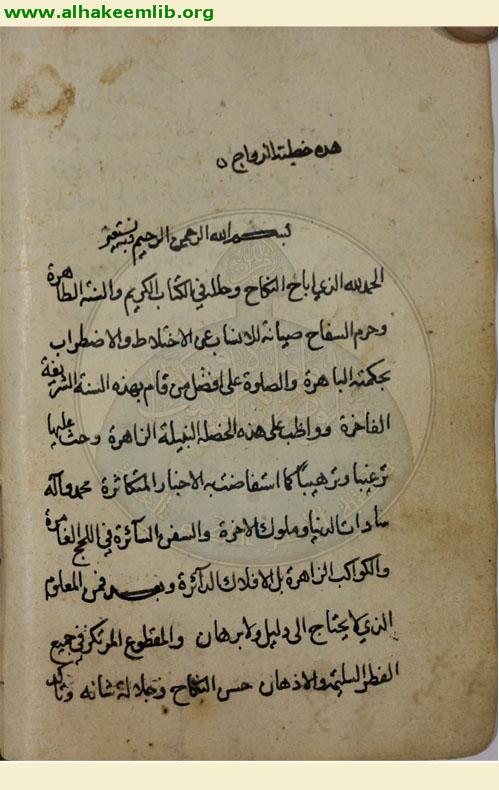 www.alhakeemlib.org
هذه خطبة الزواج
بسم الله الرحمن الرحيم وبه نستعين
الحمد لله الذي اباح النكاح وحلله في الكتاب الكريم والسنة الطاهرة
وحرم السفاح صيانة للانساب عن الاختلاط والاضطراب
بحكمته الباهرة والصلوة على افضل من قام بهذه السنة الشريفة
الفاخرة وواظب على هذه الخصلة النبيلة الزاهرة وحث عليها
ترغيبا وترهيباً كما استفاضت به الاخبار المتكاثرة محمد وآله
سادات الدنيا وملوك الاخرة والسفن السائرة في اللجج الغامرة
والكواكب الزاهرة بل الافلاك الدآئرة وبعد فمن المعلوم
الذي لا يحتاج الى دليل ولا برهان والمقطوع المرتكز في جميع
الفطر السليمة والاذهان حسن النكاح وجلالة شانه وتأكد